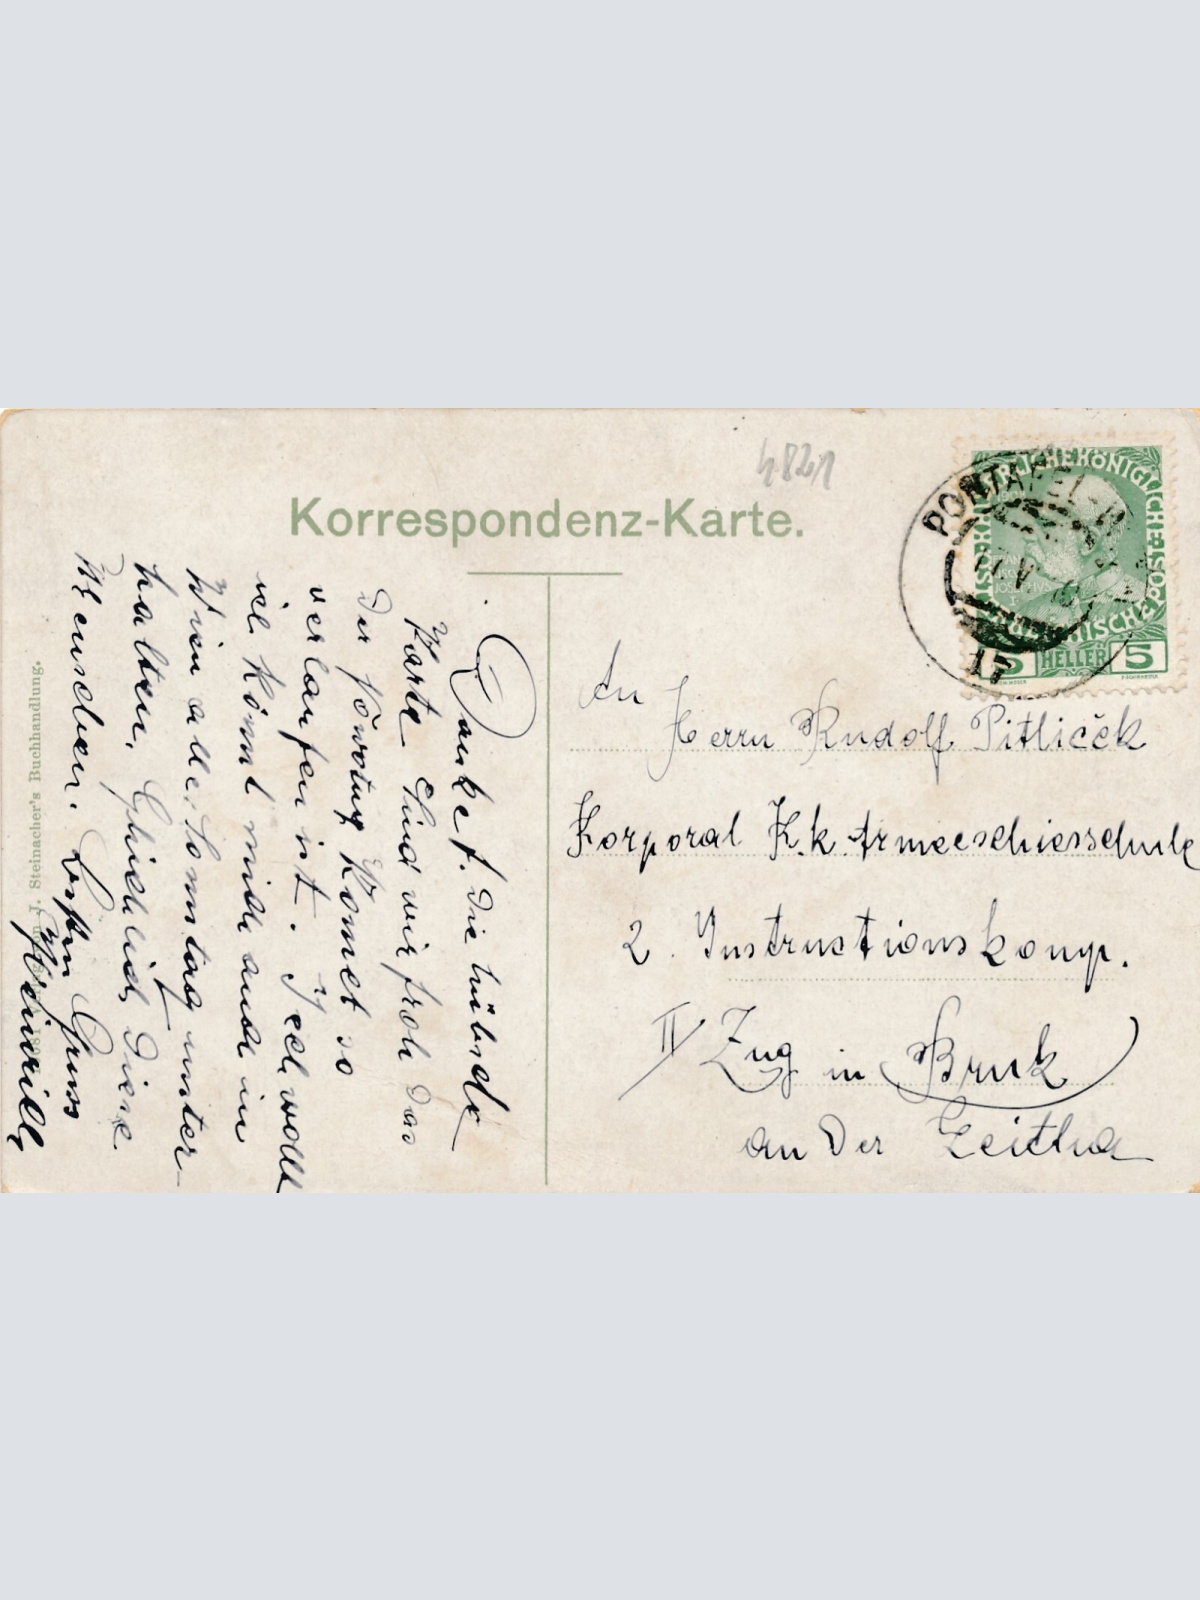 4821
Korrespondenz-Karte.
PONTAFEL
KAISERLICHEKÖNIGLICHE
POST
5 HELLER 5
An
Herrn Rudolf Pitliček
Korporal K.k. Armeeschiesschule
2. Instructionskomp.
II Zug in Bruk
an der Leitha
Danke f. die hübsche
Karte Sind wir froh das
der Komet so
verlaufen ist. Ich wollt
viel könnt mich auch in
Wien alle Sonntag unter-
halten. Glücklich diese
Menschen. Besten Gruss
Steinacher's Buchhandlung.